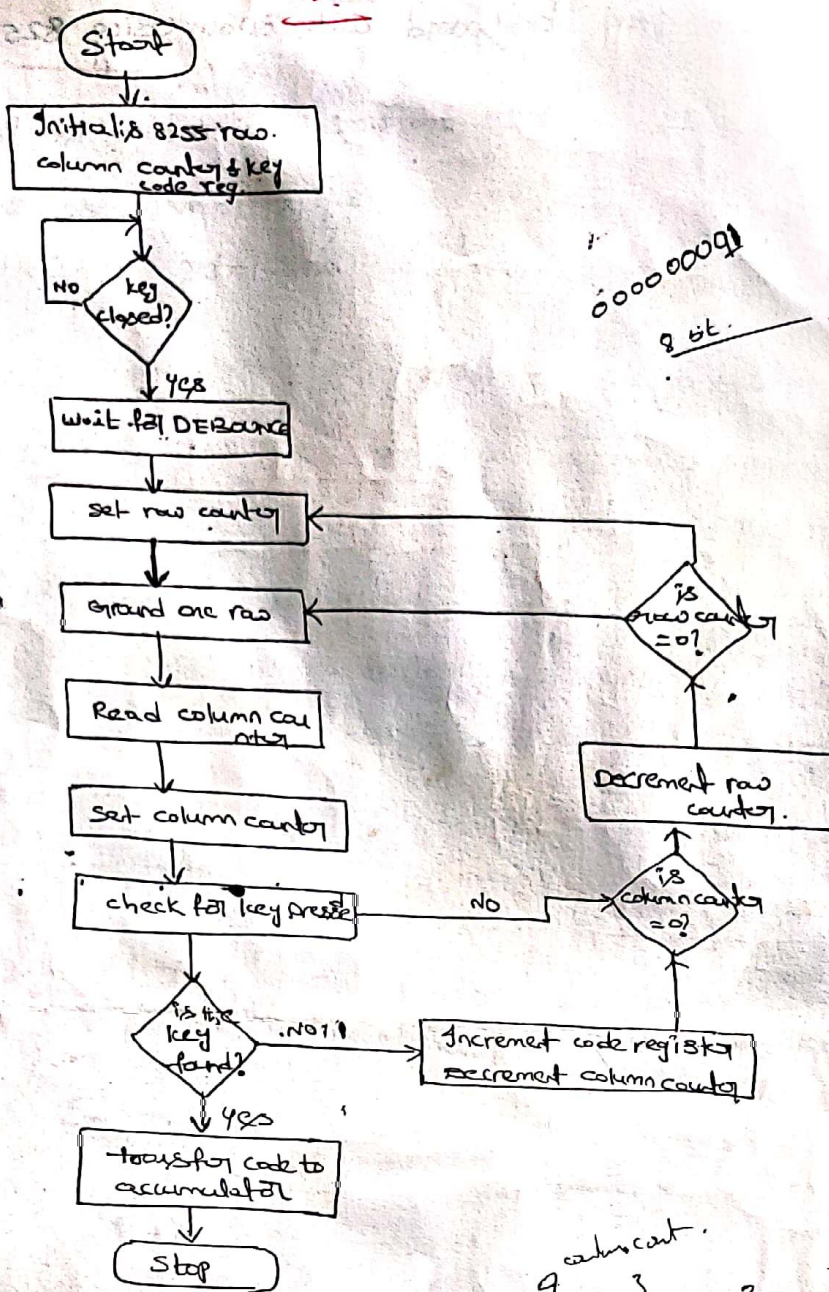 Start
Initialis 8255 row.
column counter & key
code reg.
NO
key
closed?
yes
wait for DEBOUNCE
set row counter
Ground one row
Read column cou
nter
set column counter
check for key presse
NO
is the
key
found?
NO
yes
transfer code to
accumulator
Stop
Increment code register
Decrement column counter
is
column counter
=0?
Decrement row
counter.
is
row counter
=0?
8 bit.